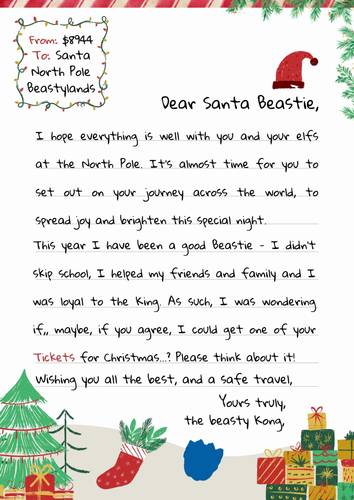 From: $8944
To: Santa
North Pole
Beastylands
Dear Santa Beastie,
I hope everything is well with you and your elfs
at the North Pole. It's almost time for you to
set out on your journey across the world, to
spread joy and brighten this special night.
This year I have been a good Beastie - I didn't
skip school, I helped my friends and family and I
was loyal to the King. As such, I was wondering
if,, maybe, if you agree, I could get one of your
Tickets for Christmas...? Please think about it!
Wishing you all the best, and a safe travel,
Yours truly,
the beasty Kong,